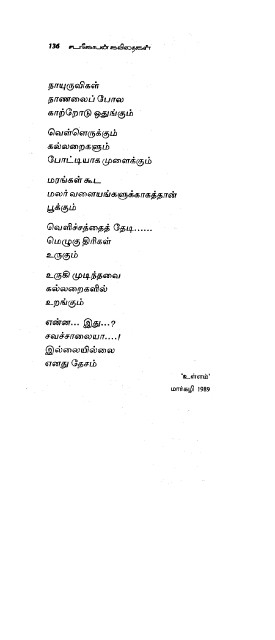 136 சடாகோபன் கவிதைகள்
நாயுருவிகள்
நாணலைப் போல
காற்றோடு ஒதுங்கும்
வெள்ளெருக்கும்
கல்லறைகளும்
போட்டியாக முளைக்கும்
மரங்கள் கூட
மலர் வளையங்களுக்காகத்தான்
பூக்கும்
வெளிச்சத்தைத் தேடி......
மெழுகு திரிகள்
உருகும்
உருகி முடிந்தவை
கல்லறைகளில்
உறங்கும்
என்ன... இது...?
சவச்சாலையா....!
இல்லையில்லை
எனது தேசம்
'உள்ளம்'
மார்கழி 1989